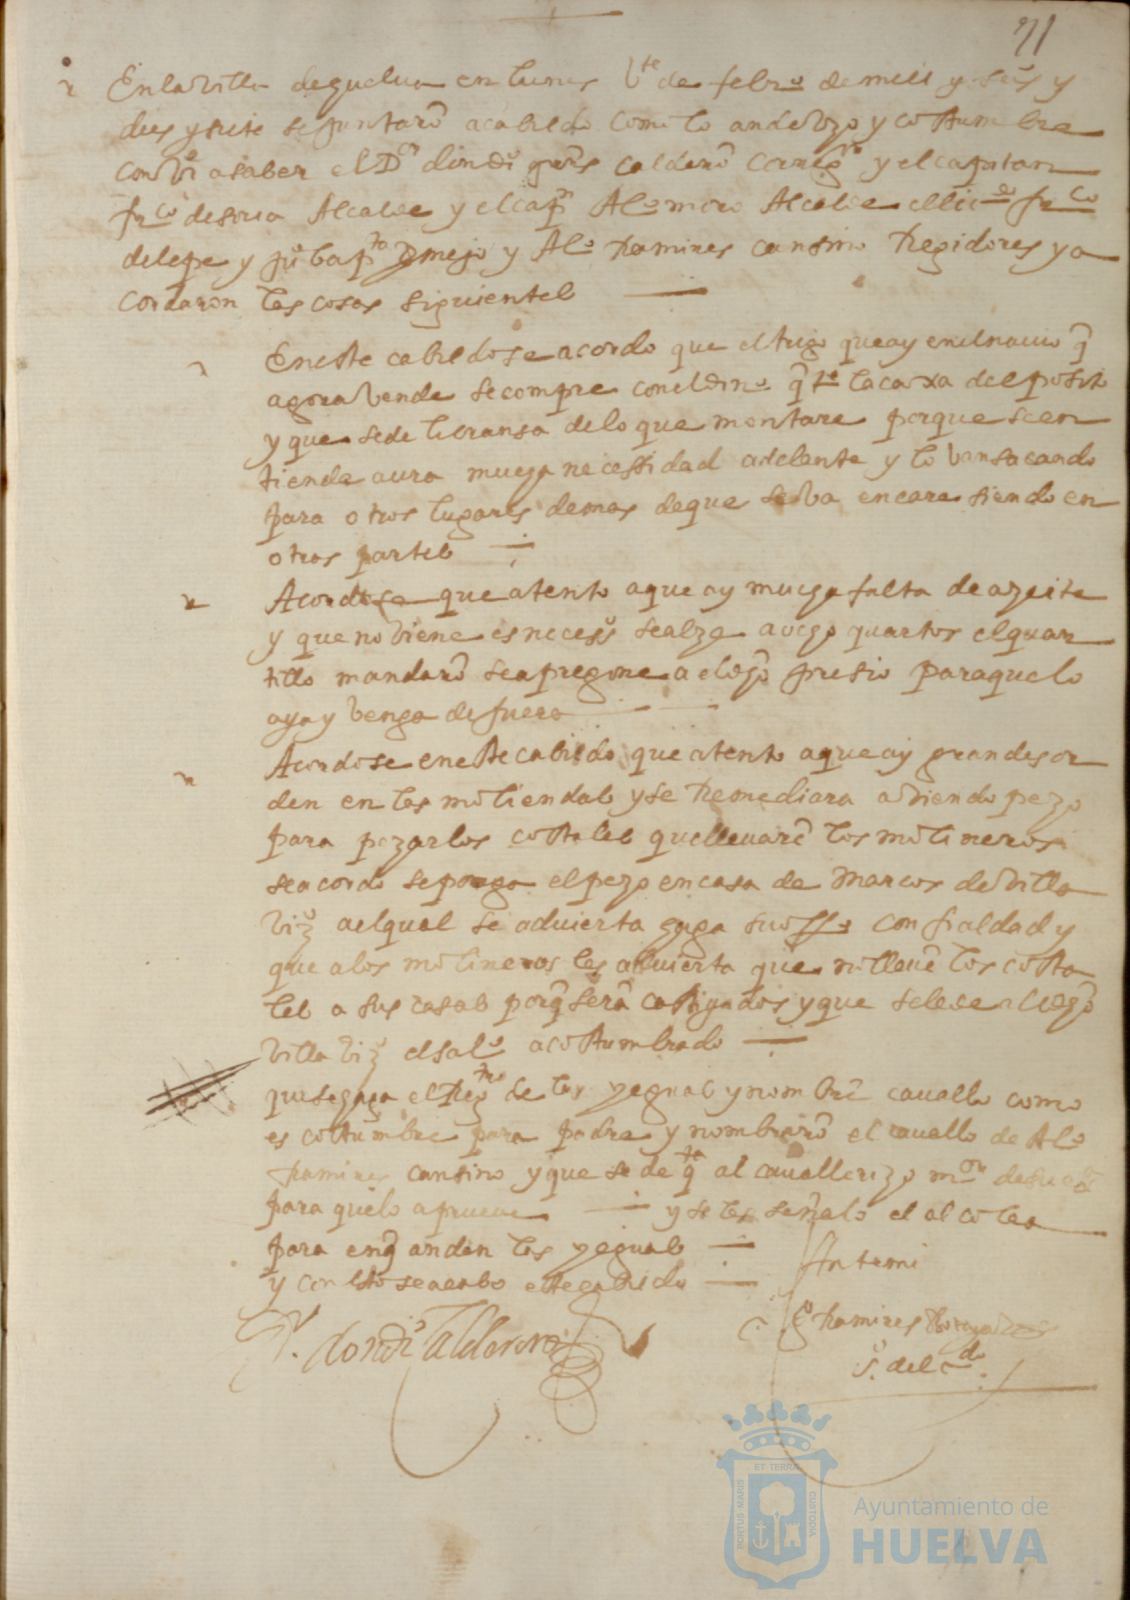 71
En la villa de guelua en lunes bte de febro de mill y seis y
dies y siete se juntarō a cabildo como lo an de uzo y costumbre
conbi a saber el Dor don di calderō corregor y el capitan
frco de soria Alcalde y el capn Alo moro Alcalde el licdo frco
de lepe y ju bapta bmejo y Alo Ramires cansino Regidores y a
cordaron las cosas siguientes
En este cabildo se acordo que el trigo que ay en el nauio q̄
agora bende se compre con el dino q̄ te la caxa del posito
y que se de libransa de lo que montare porque se en
tiende aura muega necessidad adelante y lo ban sacando
para otros lugares demas de que se ba encaresiendo en
otras partes
Acordose que atento a que ay muega falta de azeite
y que no biene es neceso se alze a ocgo quartos el quar
tillo mandarō se apregone a el dgo presio para que lo
aya y benga de fuera
Acordose en este cabildo que atento a que ay gran desor
den en las moliendas y se Remediara abiendo pezo
para pezar los costales que lleuarē los molineros
se acordo se ponga el pezo en casa de Marcos de villa
biz ael qual se aduierta gaga su offo con fialdad y
que a los molineros les aduierta que no lleuē los costa
les a sus casas porq̄ serā castigados y que se le de al dgo
villa biz el salo acostumbrado
que se gaga el Rego de las yeguas y nombrē cauallo como
es costumbre para padre y nombrarō el cauallo de Alo
Ramires cansino y que se de qta al cauallerizo mor de su exa
para que lo aprueue y se les señalo el alcolea
para en q̄ anden las yeguas
y con esto se acabo este cabildo
Ante mi
Dor don di Calderon
go Ramires
so del cdo
PORTUS MARIS
ET TERRA
CUSTODIA
Ayuntamiento de
HUELVA